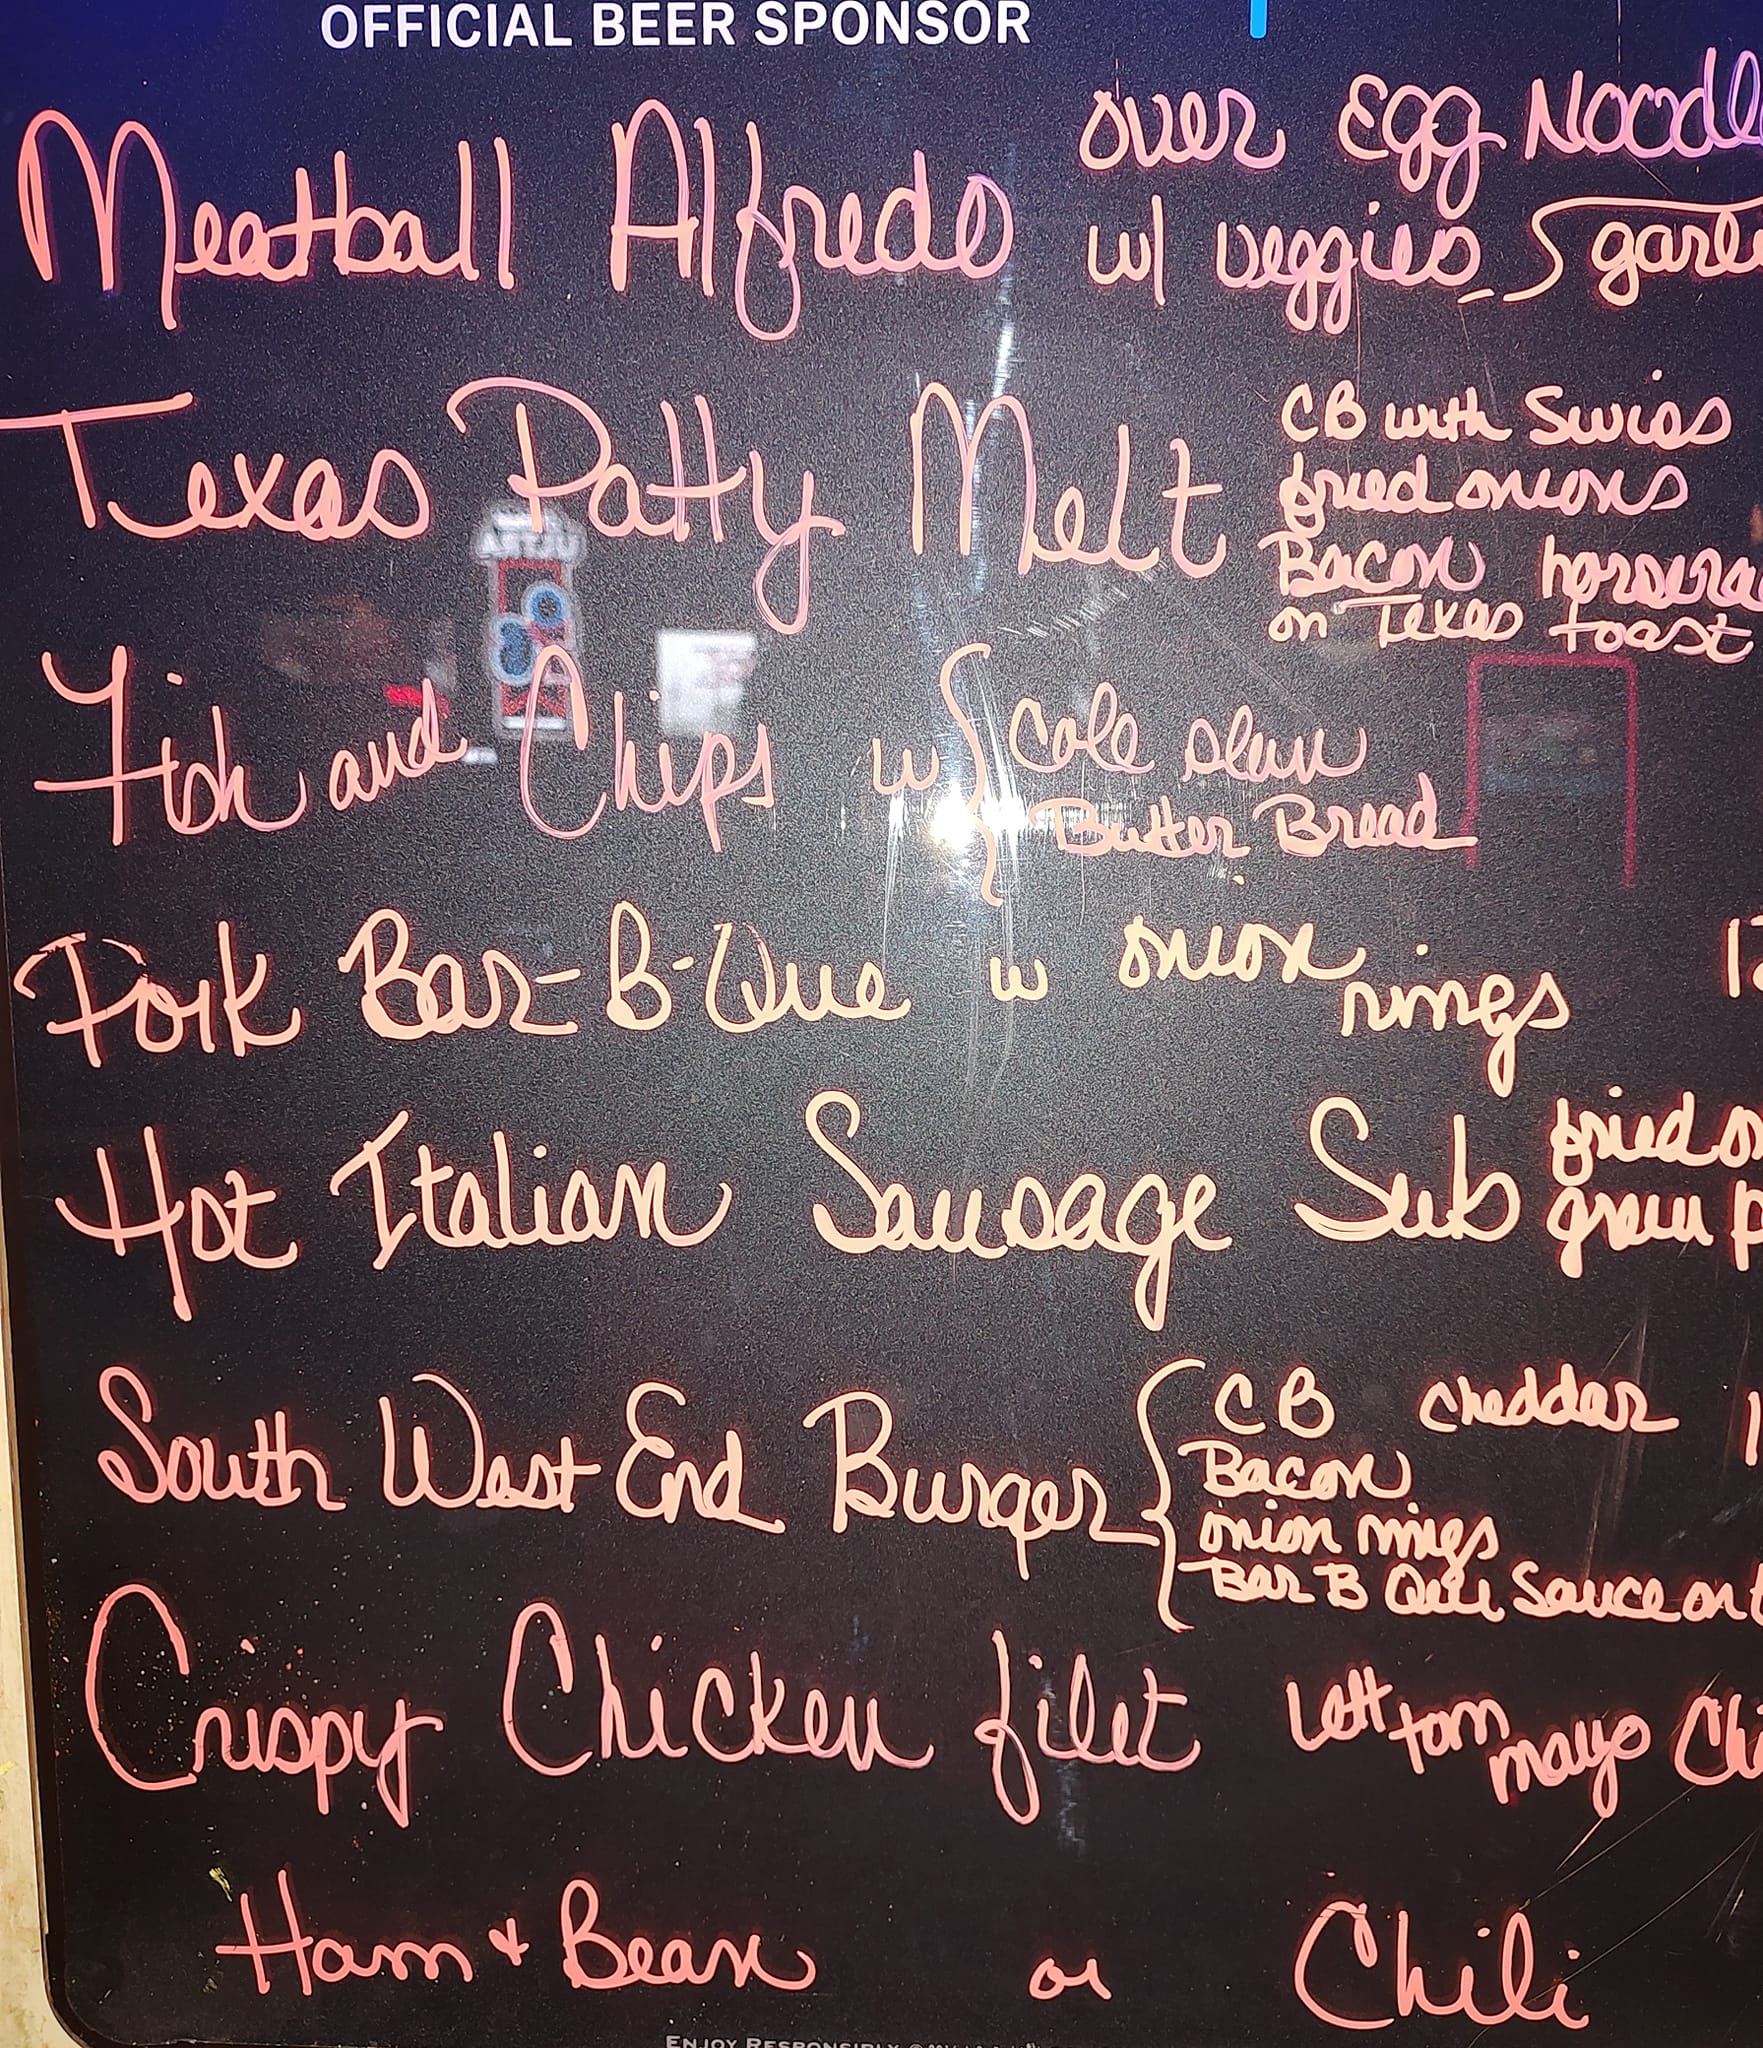 OFFICIAL BEER SPONSOR
Meatball Alfredo over Egg Noodle
w/ veggies garl
Texas Patty Melt CB with Swiss
fried onions
Bacon horsera
on Texas toast
Fish and Chips w cole slaw
Butter Bread
Pork Bar-B-Que w onion rings 12
Hot Italian Sausage Sub fried on
green p
South West End Burger CB cheddar 1
Bacon
onion rings
Bar B Que Sauce on
Crispy Chicken filet Lett tom mayo Ch
Ham + Bean or Chili
ENJOY RESPONSIBLY